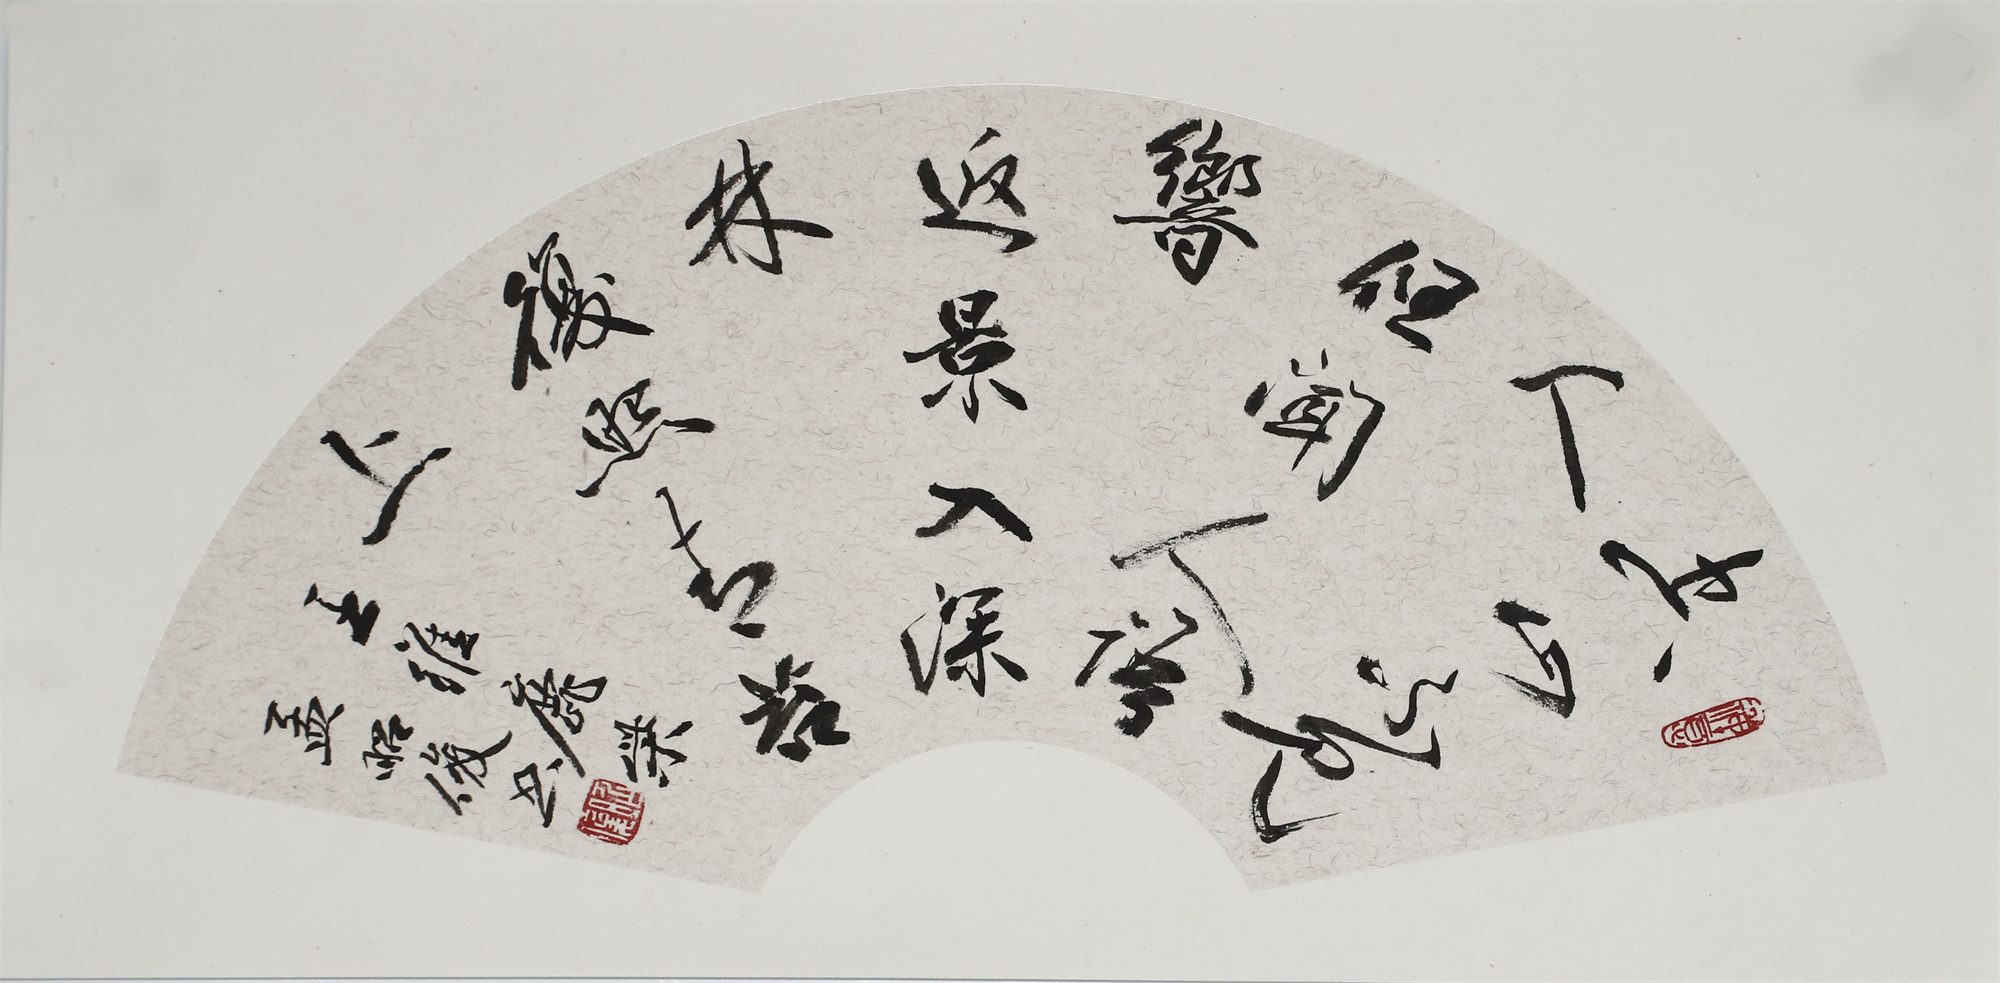 空山不見
人
但聞人語
響
返景入深
林
復照青苔
上
王維鹿柴
孟俊書